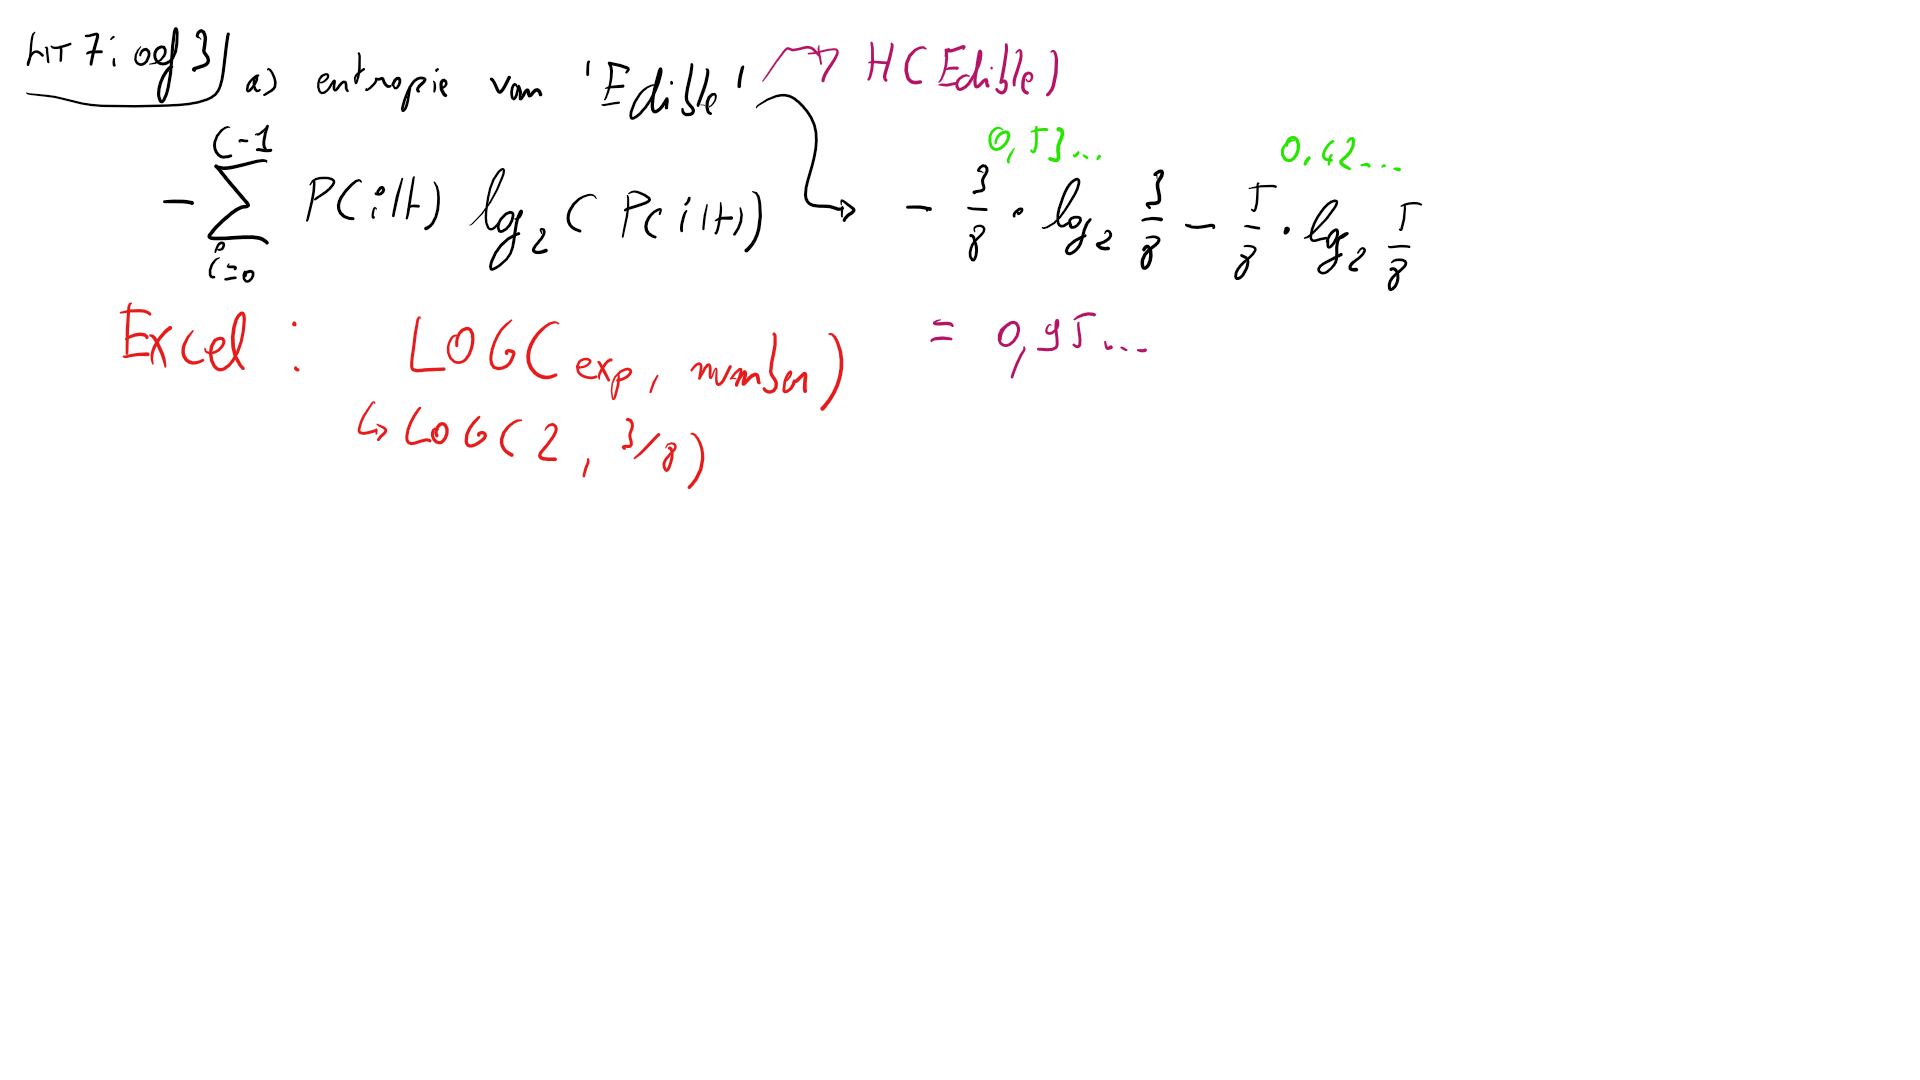 HT 7: oef 3) a) entropie van 'Edible' → H(Edible)
0,53... 0,42...
- C-1 ∑ i=0 P(i|t) log₂ ( P(i|t)) → - 3/8 · log₂ 3/8 - 5/8 · log₂ 5/8
= 0,95...
Excel : LOG(exp, number)
↳ LOG(2, 3/8)